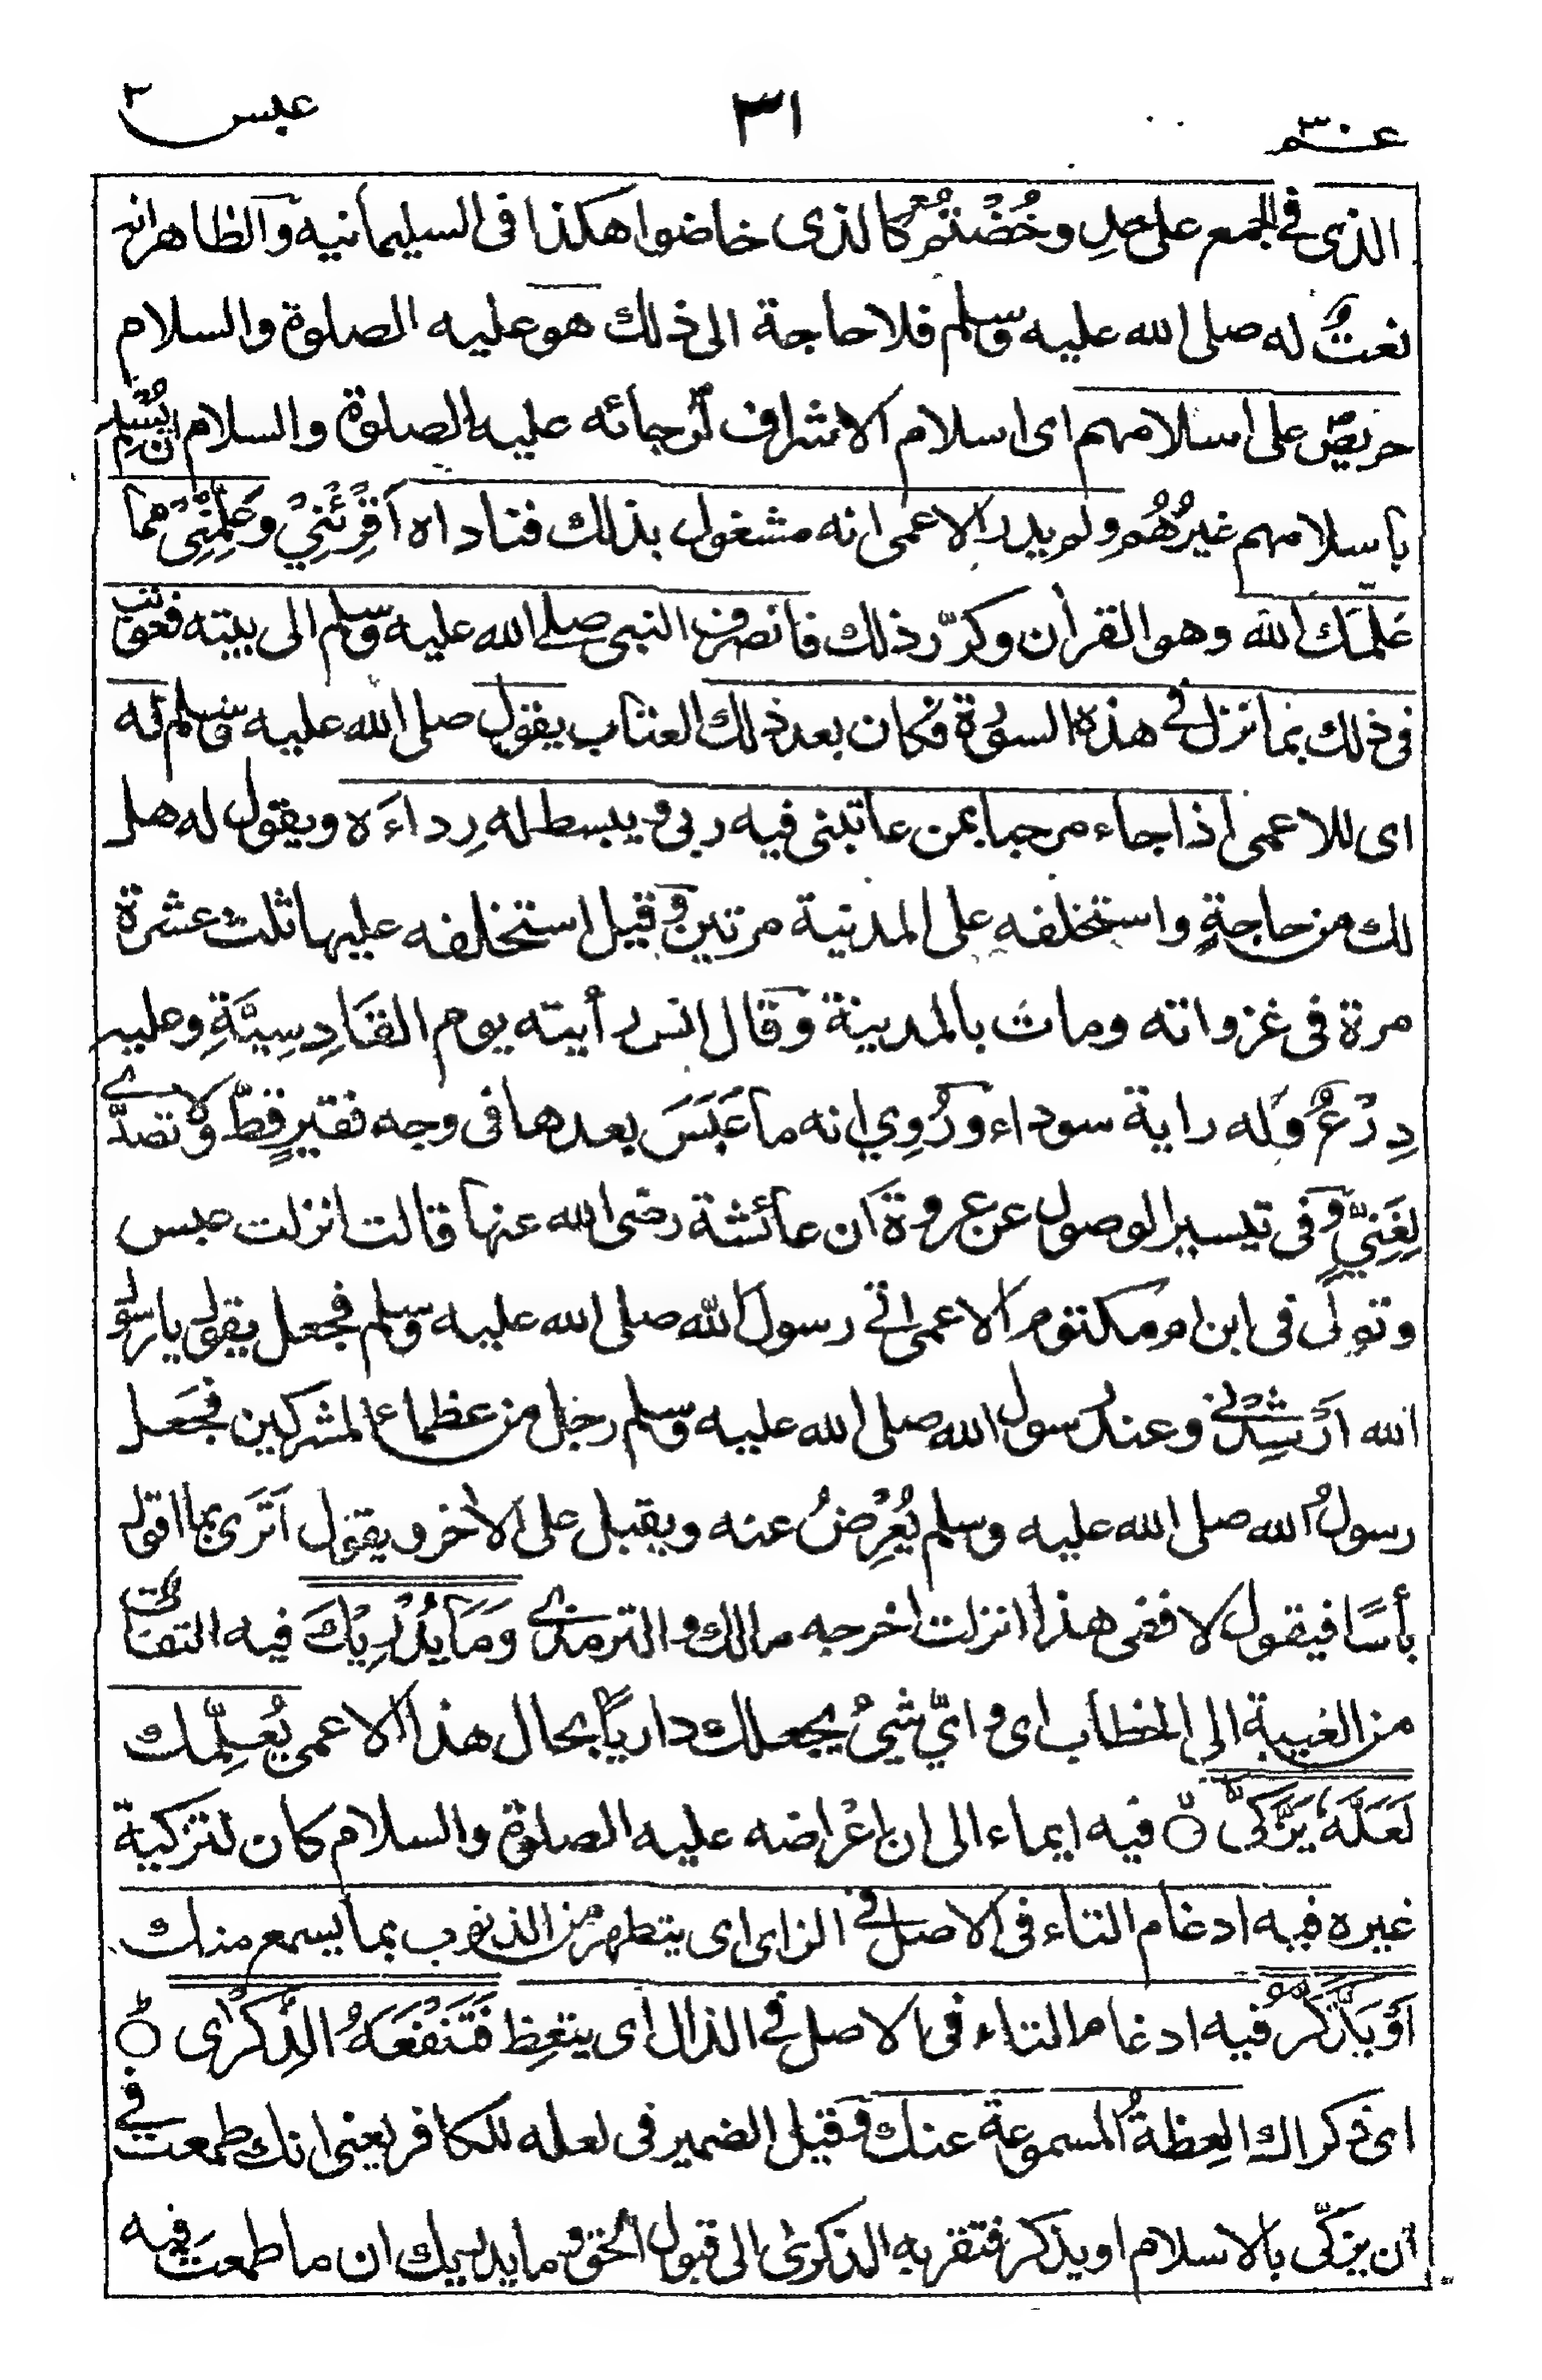 عم ٣٠
٣١
عبس ٣
الذى فى الجمع على حدِ وخُضْتُمْ كالذى خاضوا هكذا فى السليمانية والظاهرانه
نعتٌ له صلى الله عليه وسلم فلا حاجة الى ذلك هو عليه الصلوة والسلام
حريصٌ على اسلامهم اى اسلام الاشراف لرجائه عليه الصلوة والسلام ان يُسْلِمَ
باسلامهم غيرُهُم ولم يدر الاعمى انه مشغول بذلك فناداه اَقْرِئْنِيْ وعَلِّمْنِيْ مما
عَلَّمَك الله وهو القرأن وكرّر ذلك فانصرف النبى صلے الله عليه وسلم الى بيته فعوتب
فى ذلك بما نزل فى هذه السورة فكان بعد ذلك العتاب يقول صلى الله عليه وسلم له
اى للاعمى اذا جاء مرحبا بمن عاتبنى فيه ربى و يبسط له رِداءَه ويقول له هل
لك من حاجةٍ واستخلفه على المدنية مرتين وقيل استخلفه عليها ثلث عشرة
مرة فى غزواته ومات بالمدينة وقال انس رأيته يوم القَادِسِيَّةِ وعليه
دِرْعٌ وله راية سوداء ورُوِي انه ما عَبَسَ بعدها فى وجه فقيرٍ قطّ ولا تصدّے
لِغَنِيٍّ وفى تيسير الوصول عن عروة ان عائشة رضى الله عنها قالت انزلت عبس
وتولّى فى ابن ام مكتوم الاعمى اتى رسول الله صلى الله عليه وسلم فجعل يقول يا رسول
الله اَرْشِدْنى وعند رسول الله صلى الله عليه وسلم رجل من عظماء المشركين فجَعَل
رسولُ الله صلى الله عليه وسلم يُعْرِضُ عنه ويقبل على الأخر ويقول اَتَرَى بما اقول
بأسًا فيقول لا ففى هذا انزلت اخرجه مالك والترمذے وَمَا يُدْرِيْكَ فيه التفات
من الغيبة الى الخطاب اى و ايّ شيءٍ يجعلك داريًا بحال هذا الاعمى يُعَلِّمك
لَعَلَّهٗ يَزَّكّٰى ۙ فيه ايماء الى ان اِعْراضه عليه الصلوة والسلام كان لتزكية
غيره فيه ادغام التاء فى الاصل فى الزاى اى يتطهر من الذنوب بما يسمع منك
اَوْ يَذَّكَّرُ فيه ادغام التاء فى الاصل فى الذال اى يتعِظ فَتَنْفَعَهُ الذِّكْرٰى ۙ
اى ذكراك العِظَةُ المسموعة عنك وقيل الضمير فى لعله للكافر يعنى انك طمعت فى
ان يزكّى بالاسلام او يذكر فتقربه الذكرىٰ الى قبول الحق وما يدريك ان ما طمعتَ فيه